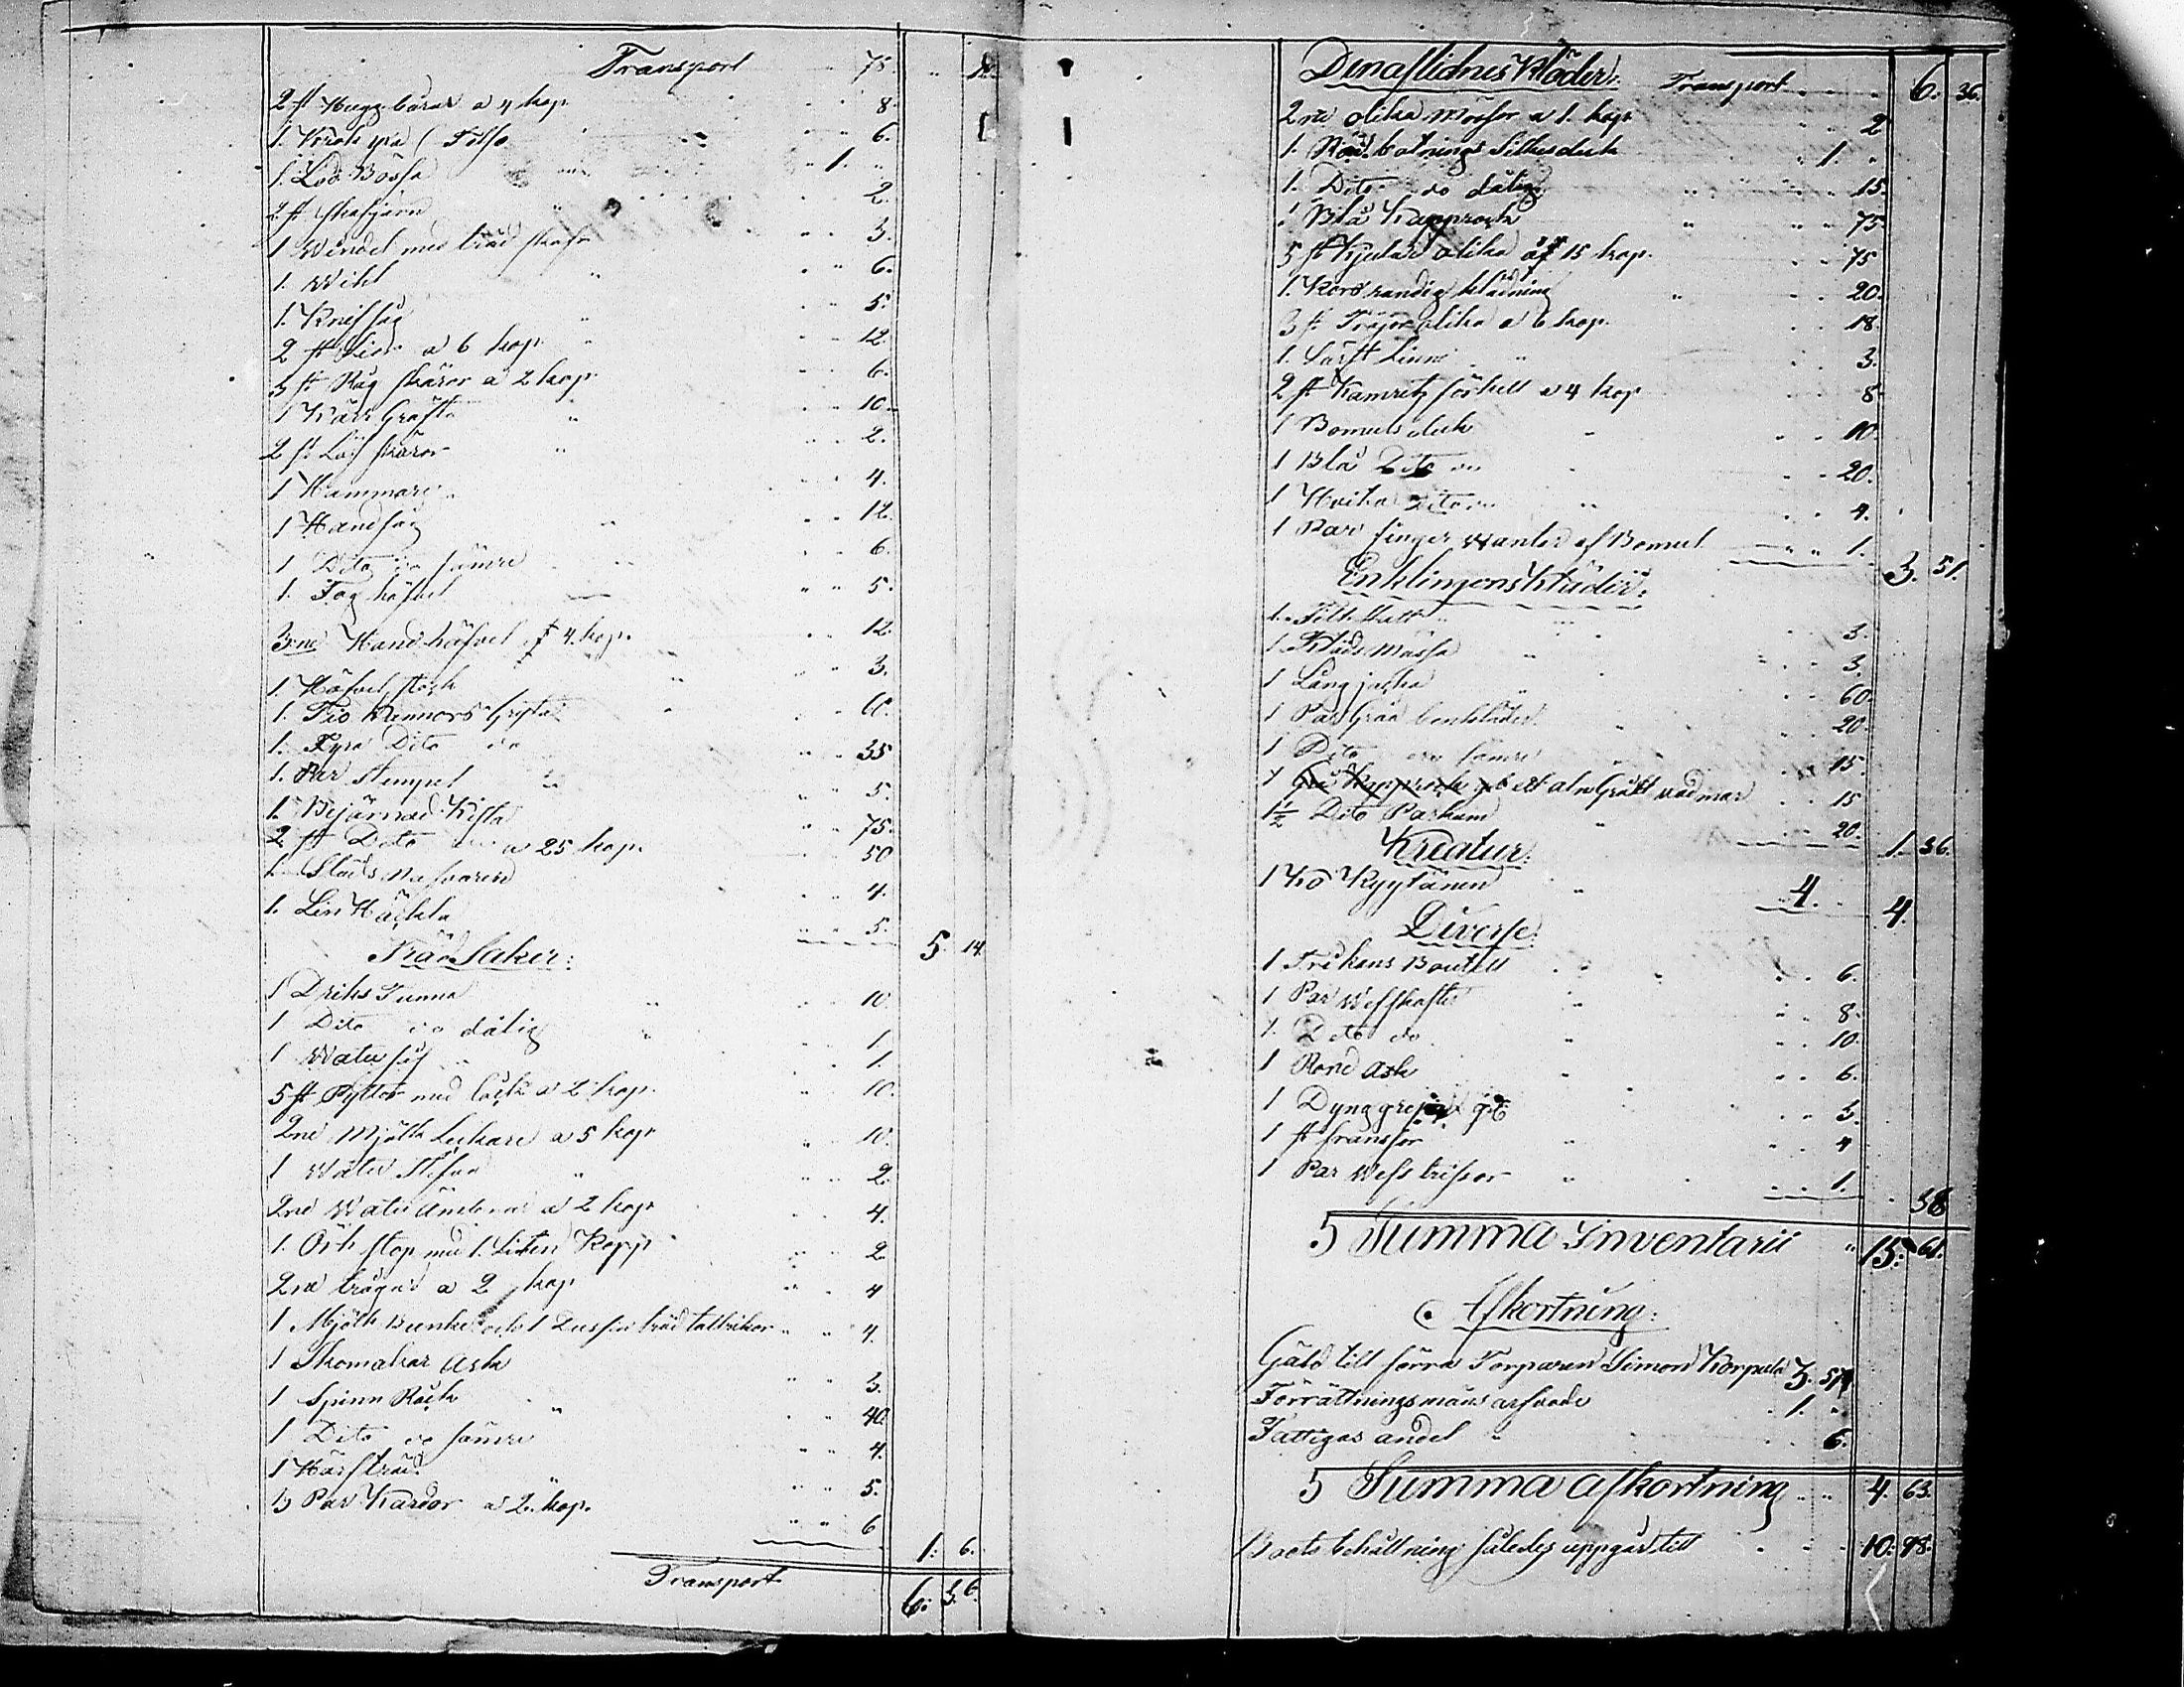 Transport 75.
2 st Hugg bårar a 4 kop 8
1. Krok yxa 6.
1. Lod Bössa 1.
2 st skafjärn 2.
1 Windel med träd skaft 3.
1. Wihl 6.
1. Knif såg 5.
2 st Liar a 6 kop 12
3 st Råg skäror a 2 kop 6.
1 Kärr Gräfta 10.
2 st Löf skäror 2.
1 Hammare 4.
1 Handsåg 12.
1 Dito do sämre 6.
1. Fog höfvel 5.
3:ne Hand höfvel 4. kop. 12.
1. Höfvel stock 3.
1. Tio kannors Gryta 60.
1. Fyra Dito do 35
1. Par stempel 5.
1. Bejärnad Kista 75.
2 st Dito a 25 kop. 50
1. Släds Nafvare 4.
1. Lin Häckla 5.
5 14.
Träd Saker:
1 Driks Tunna 10.
1 Dito do dålig 1
1 Watu så 1.
5 st Byttor med lock a 2 kop. 10.
2ne Mjölk Leckare a 5 kop 10.
1 Watu Stefva 2.
2ne Watu Ämbar a 2 kop 4.
1. Öhl stop med 1. Liten Kopp 2
2ne trågar a 2 kop 4
1 Mjölk Bunke och 1 Dussin träd talrikor 4.
1 Skomakar Ask 3.
1 Spinn Rock 40
1 Dito do sämre 4.
1 Härfträd 5.
3 Par Kardor a 2. kop. 6
1: 6.
Transport 6: 36.
Den aflidnes Kläder: Transport 6. 36.
2ne olika mössor a 1. kop 2
1. Röd botnings Silkesduk 1.
1. Dito do dålig 15.
1 Blå Kapprock 75.
5 st Kjolar olika af 15 kop. 75
1. Kors randig klädning 20.
3 st Tröjor olika a 6 kop. 18.
1. Lärft Linne 3.
2 st Kamrits förkell a 4 kop 8
1 Bomuls duk 10.
1 Blå Dito 20.
1 Hvita Dito 4.
1 Par finger wantar af Bomul 1.
3. 51.
Enklingens Kläder:
1. Filt Hatt 3.
1 Kläds Mössa 3
1 Lång jacka 60.
1 Par Gråa benkläder 20.
1 Dito do sämre 15.
1 ett aln Grått vadmar 15
1½ Dito Parkum 20.
1. 36.
Kreatur:
1 Ko Kyytänen 4. 4.
Diverse:
1 Trekans Boutell 6.
1 Par Wefskaftor 8.
1. Dito do 10.
1 Rond Ask 6.
1 3.
1 st fransar 4
1 Par Wefs trissor 1.
38
S Summa Inventarii 15. 61.
Afkortning:
Gäld till förra Torparen Simon Korpela 3. 57
Förrättningsmäns arfvode 1.
Fattigas andel 6.
S Summa afkortning 4. 63.
Boets behållning således uppgår till 10. 98.